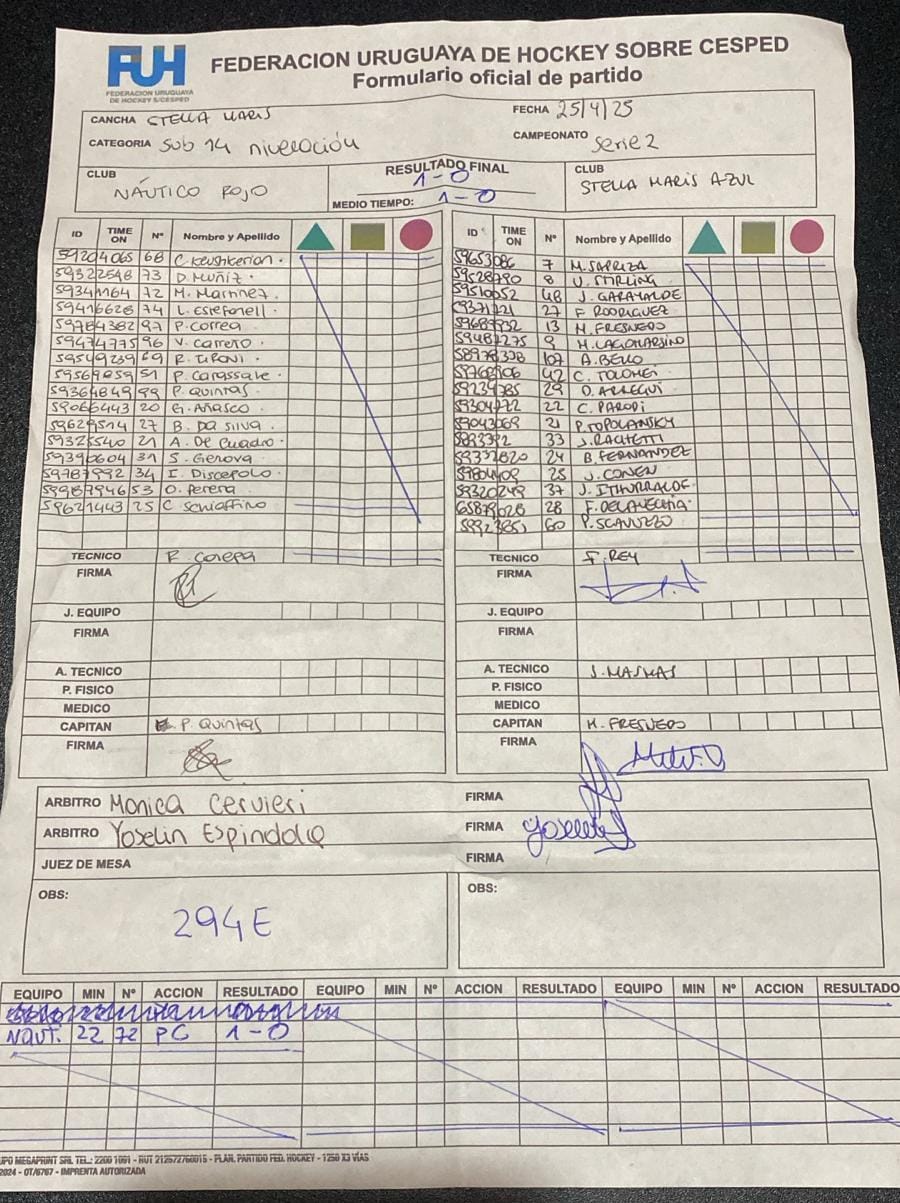 FUH
FEDERACION URUGUAYA
DE HOCKEY S/CESPED
FEDERACION URUGUAYA DE HOCKEY SOBRE CESPED
Formulario oficial de partido
CANCHA STELLA MARIS
FECHA 25/4/25
CATEGORIA Sub 14 nivelación
CAMPEONATO Serie 2
CLUB NÁUTICO ROJO
RESULTADO FINAL 1-0
MEDIO TIEMPO: 1-0
CLUB STELLA MARIS AZUL
ID TIME ON Nº Nombre y Apellido
59204065 68 C. Keushkerian
59322548 73 D. MUÑIZ
59341164 72 M. Martinez
59416628 74 L. Estefanell
59784382 97 P. Correa
59474775 96 V. Carrero
59549239 69 R. TIRONI
59569059 51 P. Carassale
59364849 99 P. QUINTAS
59066443 20 G. Añasco
59629514 27 B. Da Silva
59325540 21 A. De Cuadro
59390604 31 S. Genova
59787992 34 I. Discepolo
59987946 53 O. Perera
59621443 25 C Schiaffino
TECNICO R. Conepa
FIRMA
J. EQUIPO
FIRMA
A. TECNICO
P. FISICO
MEDICO
CAPITAN P. Quintas
FIRMA
ID TIME ON Nº Nombre y Apellido
59653086 7 M. SAPRIZA
59528780 8 V. STIRLING
59510052 48 J. GARAYALDE
59371721 27 F RODRIGUEZ
59687932 13 M. FRESNEDO
59487275 9 M. LAGOMARSINO
58978308 107 A. BELLO
59768906 42 C. TOLOMEI
59234785 29 D. ARREGUI
59304722 22 C. PARODI
59043069 21 P. TOPOLANSKY
33 J. RACHETTI
59332820 24 B. FERNANDEZ
59804409 25 J. CONEN
59320249 37 J. ITHURRALDE
65879028 28 F. DELAVECHIA
59923851 60 P. SCAVUZZO
TECNICO F. REY
FIRMA
J. EQUIPO
FIRMA
A. TECNICO J. MASKAS
P. FISICO
MEDICO
CAPITAN M. FRESNEDO
FIRMA
ARBITRO Monica Cervieri FIRMA
ARBITRO Yoselin Espindola FIRMA Yoselin
JUEZ DE MESA FIRMA
OBS: 294E
OBS:
EQUIPO MIN Nº ACCION RESULTADO EQUIPO MIN Nº ACCION RESULTADO EQUIPO MIN Nº ACCION RESULTADO
NAUT. 22 72 PC 1-0
UPO MEGAPRINT SRL TEL.: 2200 1091 - RUT 212572760015 - PLAN. PARTIDO FED. HOCKEY - 1250 X3 VÍAS
2024 - OT/6767 - IMPRENTA AUTORIZADA